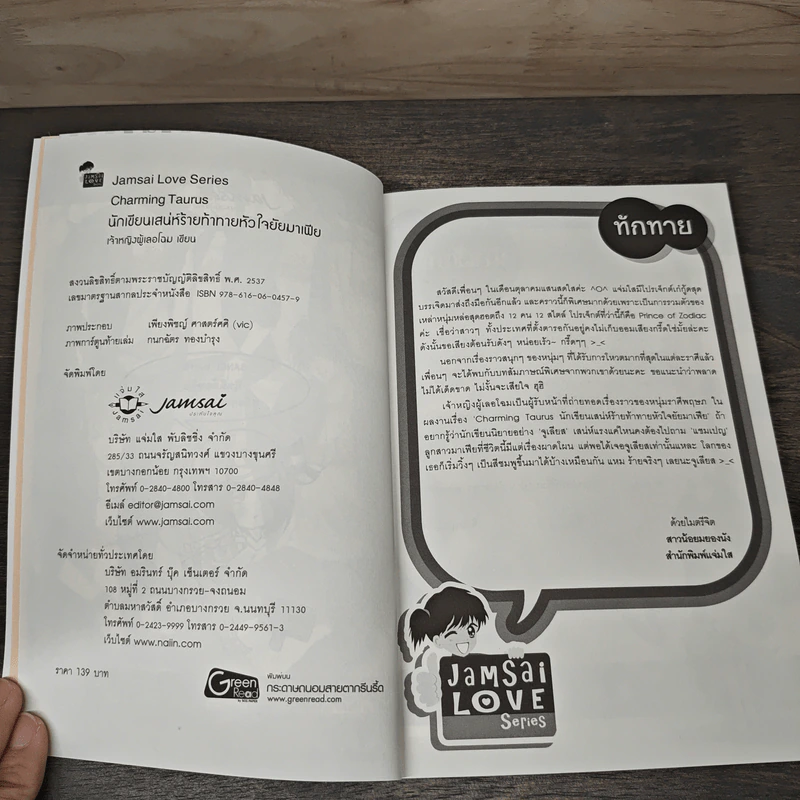 JAMSAI
LOVE
Jamsai Love Series
Charming Taurus
นักเขียนเสน่ห์ร้ายท้าทายหัวใจยัยมาเฟีย
เจ้าหญิงผู้เลอโฉม เขียน
สงวนลิขสิทธิ์ตามพระราชบัญญัติลิขสิทธิ์ พ.ศ. 2537
เลขมาตรฐานสากลประจำหนังสือ ISBN 978-616-06-0457-9
ภาพประกอบ เพียงพิชญ์ ศาสตร์ศศิ (vic)
ภาพการ์ตูนท้ายเล่ม กนกฉัตร ทองบำรุง
จัดพิมพ์โดย
แจ่มใส
jamsai
jamsai
บริษัท แจ่มใส พับลิชชิ่ง จำกัด
285/33 ถนนจรัญสนิทวงศ์ แขวงบางขุนศรี
เขตบางกอกน้อย กรุงเทพฯ 10700
โทรศัพท์ 0-2840-4800 โทรสาร 0-2840-4848
อีเมล์ editor@jamsai.com
เว็บไซต์ www.jamsai.com
จัดจำหน่ายทั่วประเทศโดย
บริษัท อมรินทร์ บุ๊ค เซ็นเตอร์ จำกัด
108 หมู่ที่ 2 ถนนบางกรวย-จงถนอม
ตำบลมหาสวัสดิ์ อำเภอบางกรวย จ.นนทบุรี 11130
โทรศัพท์ 0-2423-9999 โทรสาร 0-2449-9561-3
เว็บไซต์ www.naiin.com
ราคา 139 บาท
Green
Read
พิมพ์บน
กระดาษถนอมสายตากรีนรี้ด
www.greenread.com
ทักทาย
สวัสดีเพื่อนๆ ในเดือนตุลาคมแสนสดใสค่ะ ^O^ แจ่มใสมีโปรเจ็กต์เก๋กู้ดสุด
บรรเจิดมาส่งถึงมือกันอีกแล้ว และคราวนี้ก็พิเศษมากด้วยเพราะเป็นการรวมตัวของ
เหล่าหนุ่มหล่อสุดฮอตถึง 12 คน 12 สไตล์ โปรเจ็กต์ที่ว่านี้ก็คือ Prince of Zodiac
ค่ะ เชื่อว่าสาวๆ ทั้งประเทศที่ตั้งตารอกันอยู่คงไม่เก็บออมเสียงกรี๊ดใช่มั้ยล่ะคะ
ดังนั้นขอเสียงต้อนรับดังๆ หน่อยเร้ว~ กรี๊ดๆๆ >_<
นอกจากเรื่องราวสนุกๆ ของหนุ่มๆ ที่ได้รับการโหวตมากที่สุดในแต่ละราศีแล้ว
เพื่อนๆ จะได้พบกับบทสัมภาษณ์พิเศษจากพวกเขาด้วยนะคะ ขอแนะนำว่าพลาด
ไม่ได้เด็ดขาด ไม่งั้นจะเสียใจ ฮุฮิ
เจ้าหญิงผู้เลอโฉมเป็นผู้รับหน้าที่ถ่ายทอดเรื่องราวของหนุ่มราศีพฤษภ ใน
ผลงานเรื่อง 'Charming Taurus นักเขียนเสน่ห์ร้ายท้าทายหัวใจยัยมาเฟีย' ถ้า
อยากรู้ว่านักเขียนนิยายอย่าง 'จูเลียส' เสน่ห์แรงแค่ไหนคงต้องไปถาม 'แชมเปญ'
ลูกสาวมาเฟียที่ชีวิตนี้มีแต่เรื่องผาดโผน แต่พอได้เจอจูเลียสเท่านั้นแหละ โลกของ
เธอก็เริ่มวิ้งๆ เป็นสีชมพูขึ้นมาได้บ้างเหมือนกัน แหม ร้ายจริงๆ เลยนะจูเลียส >_<
ด้วยไมตรีจิต
สาวน้อยมยองนัง
สำนักพิมพ์แจ่มใส
JAMSAI
LOVE
Series